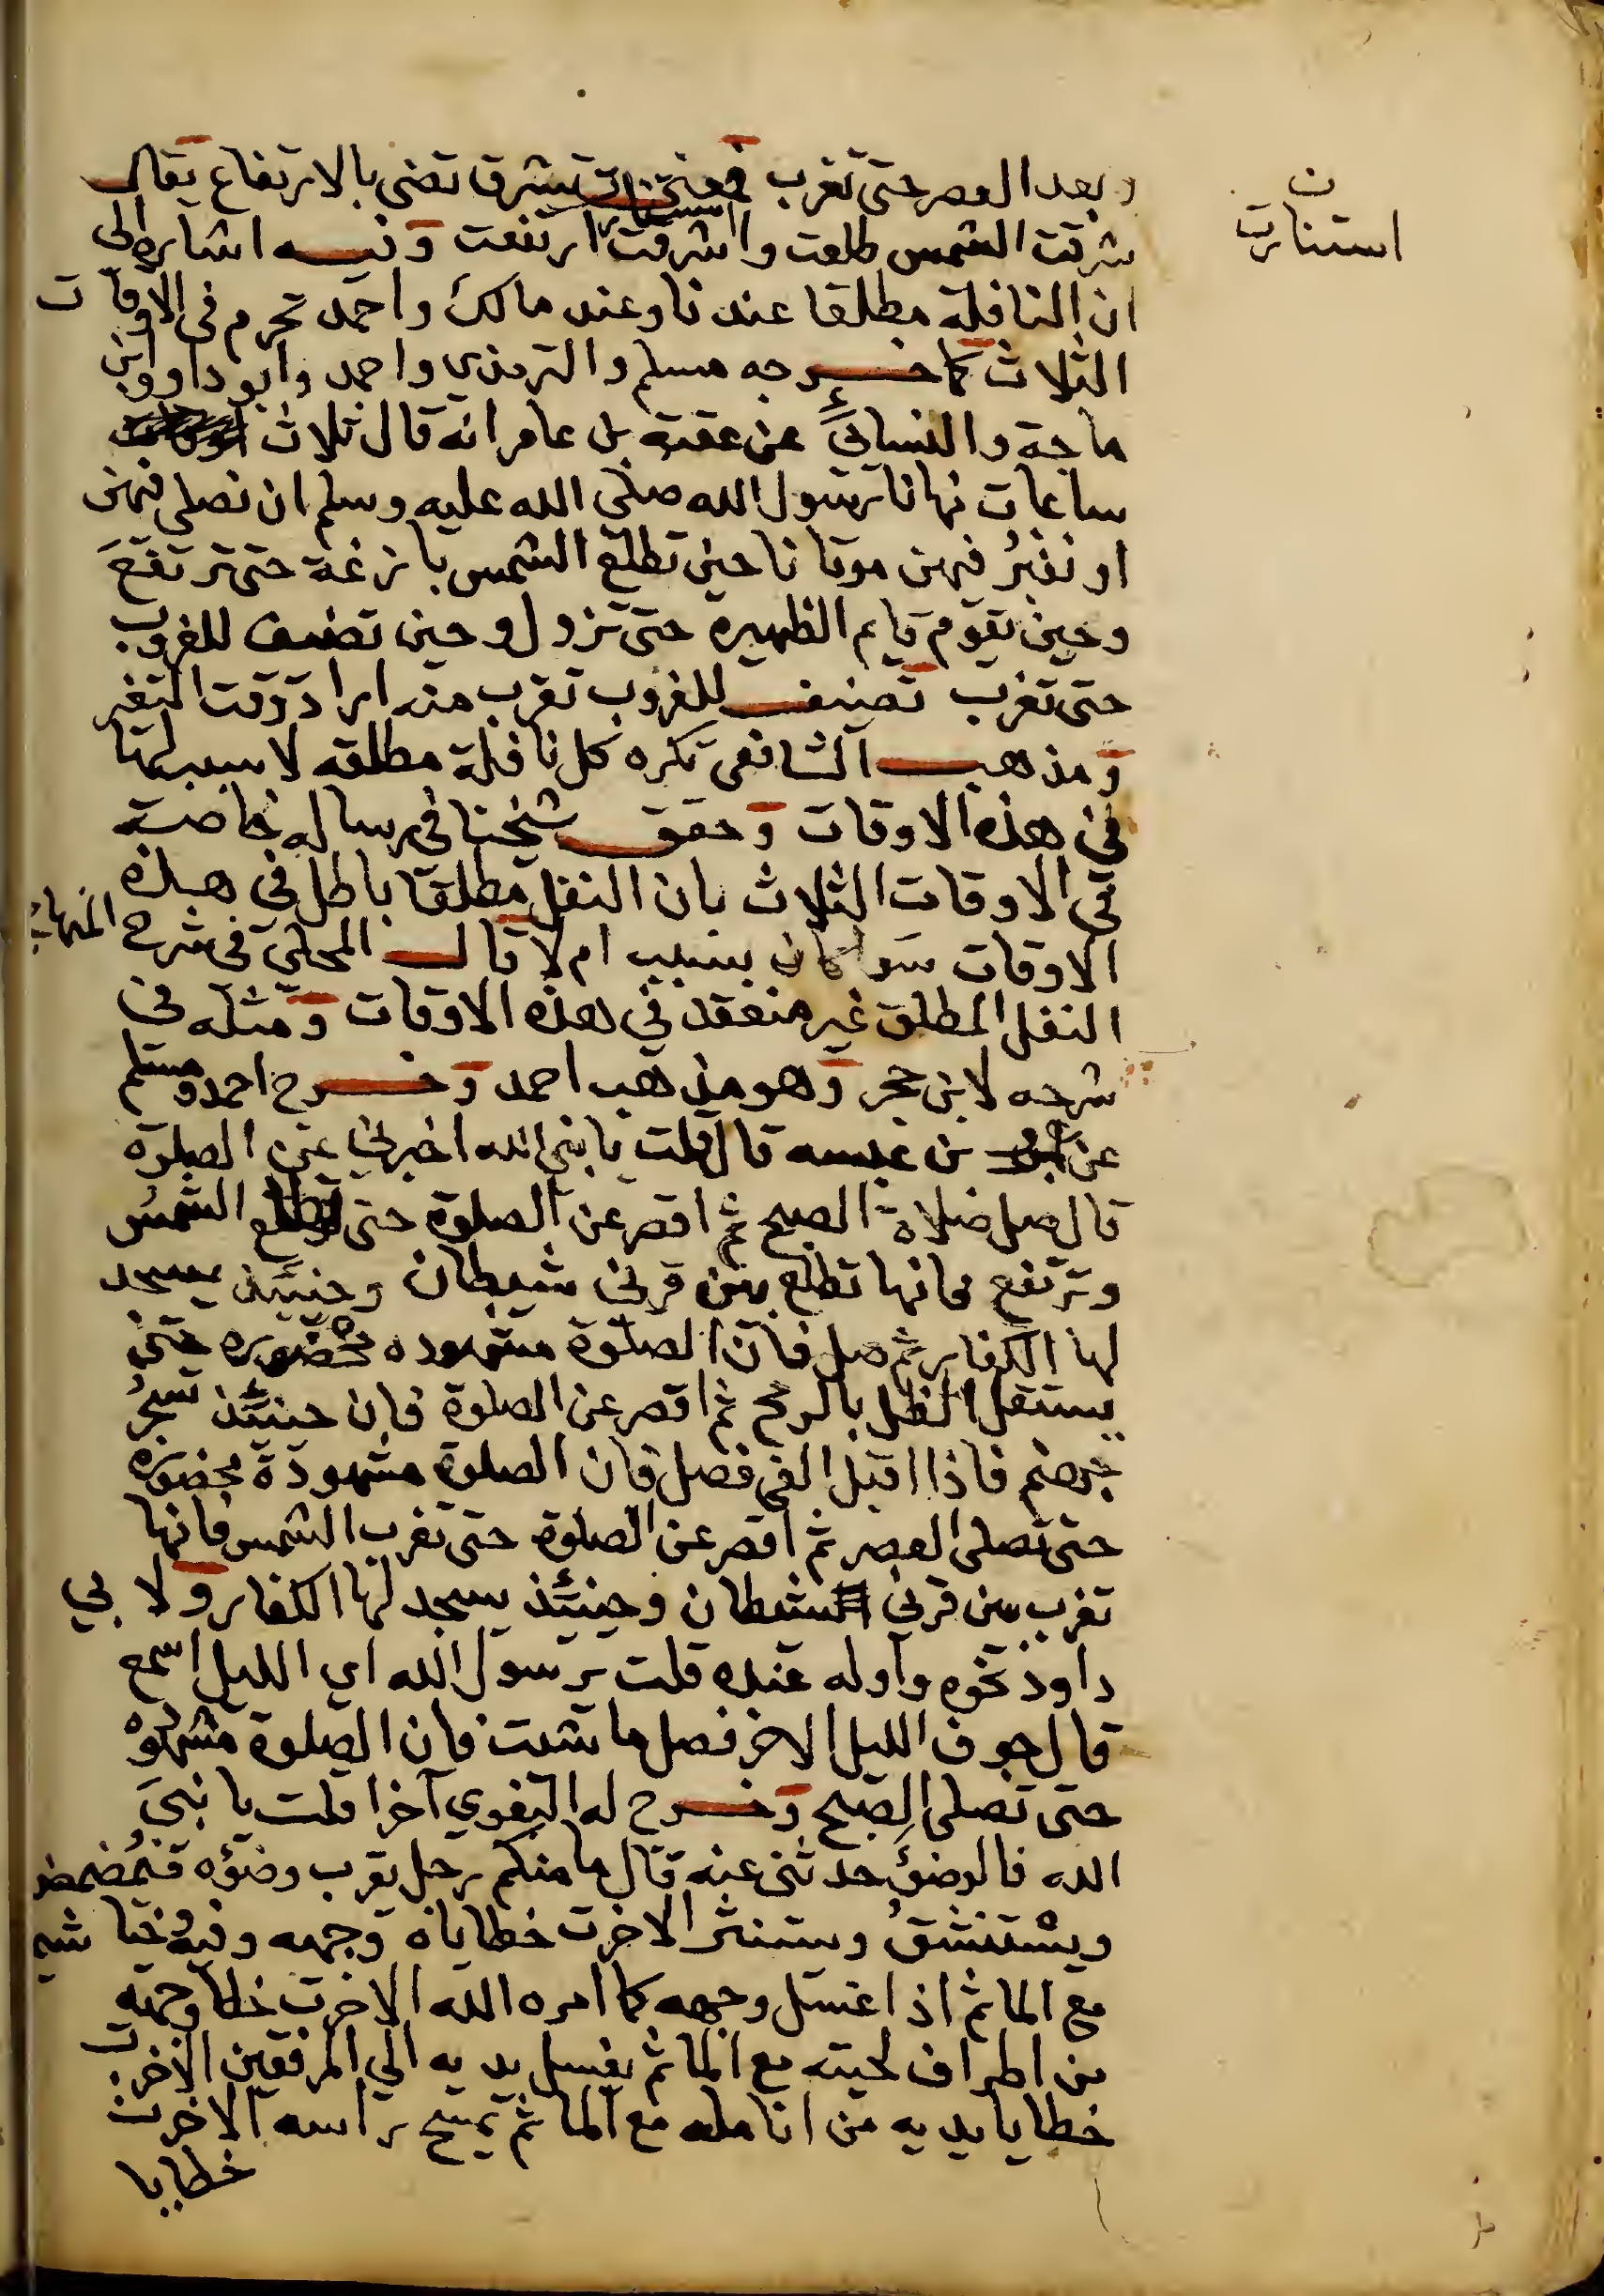 وبعد العصر حتى تغرب فمعنى تشرق تضى بالارتفاع يقال
ن
استنارت
شرقت الشمس طلعت واشرقت ارتفعت وفيه اشاره الى
ان النافلة مطلقا عندنا وعند مالك واحمد تحرم فى الاوقات
الثلاث كما خرجه مسلم والترمذي واحمد وابو داوو وابن
ماجة والنسائي عن عقبه بن عامر انه قال ثلاث
ساعات نهانا رسول الله صلى الله عليه وسلم ان نصلى فيهن
او نقبرُ فيهن موتانا حين تطلع الشمس بازغة حتى ترتفعَ
وحين يقوم قايم الظهيرة حتى تزول وحين تضيف للغروب
حتى تغرب تضيف للغروب تقرب منه اراد وقت التغير
ومذهب الشافعى تكره كل نافلة مطلقه لا سبب لها
في هذه الاوقات وحقق شيخنا فى رساله خاصة
فى الاوقات الثلاث بان النفل مطلقا باطل في هذه
الاوقات سوا كان بسبب ام لا قال المحلي فى شرح المنهاج
النفل المطلق غير منعقد في هذه الاوقات ومثله في
شرحه لابن حجر وهو مذهب احمد وخرج احمد ومسلم
عن بن عبسه قال قلت يا نبى الله اخبرني عن الصلوة
قال صل صلاة الصبح ثم اقصر عن الصلوة حتى تطلع الشمسُ
وترتفع فانها تطلع بين قرني شيطان وحينئذ يسجد
لها الكفار ثم صل فان الصلوة مشهوده محضوره حتى
يستقل الظل بالرمح ثم اقصر عن الصلوة فان حينئذ تسجرُ
جهنم فاذا اقبل الفى فصل فان الصلوة مشهودة محضوره
حتى تصلى العصر ثم اقصر عن الصلوة حتى تغرب الشمس فانها
تغرب بين قرني شيطان وحينئذ يسجد لها الكفار ولابي
داود نحوه واوله عنده قلت يرسول الله اي الليل اسمع
قال جوف الليل الاخر فصل ما شئت فان الصلوة مشهوده
حتى تصلى الصبح وخرج له البغوي آخرا قلت يا نبيَ
الله فالوضؤ حدثنى عنه قال ما منكم رجل يقرب وضؤه فيُمضمض
ويستنشقُ ويستنثر الا خرت خطاياه وجهه وفيه وخياشيم
مع الما ثم اذا غسل وجهه كما امره الله الا خرت خطا وجهه
من اطراف لحيته مع الما ثم يغسل يديه الي المرفقين الا خرت
خطايا يديه من انامله مع الما ثم يمسح براسه الا خرت
خطايا